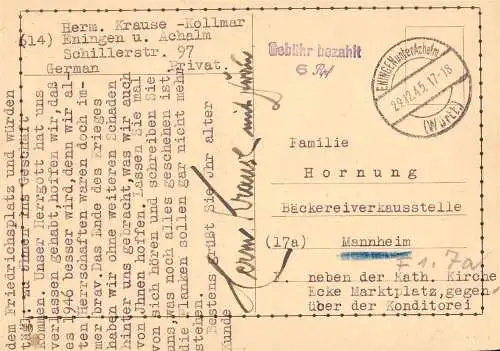 Herm. Krause -Kollmar
(14) Eningen u. Achalm
Schillerstr. 97
German Privat.
Gebühr bezahlt
6 Rpf
ENINGEN unter Achalm
29.12.45.17-18
(Württ.)
Familie
Hornung
Bäckereiverkausstelle
(17a) Mannheim
F 1. 7a
neben der Kath. Kirche
Ecke Marktplatz, gegen
über der Konditorei
dem Friedrichsplatz und würden
tägl. zu Ihnen ins Geschäft
kommen. Unser Herrgott hat uns
verlassen gehabt, hoffen wir, daß
es 1946 besser wird, denn wir al
ten Herrschaften waren doch im-
mer brav. Das Ende des Krieges
haben wir ohne weiteren Schaden
hinter uns gebracht, was wir auch
von Ihnen hoffen. Lassen Sie mal
von sich hören und schreiben Sie
uns, was noch alles geschehen ist.
die Planken sollen gar nicht mehr
stehen.
Bestens grüßt Sie Ihr alter
Kunde
Herm. Krause mit